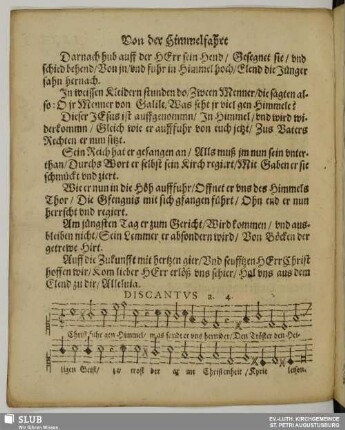 Von der Himmelfahrt
Darnach hub auff der HErr sein Hend/ Gesegnet sie/ vnd
schied behend/ Von jn/ vnd fuhr in Himmel hoch/ Elend die Jünger
sahn hernach.
In weissen Kleidern stunden do/ Zween Menner/ die sagten al-
so: O jr Menner von Galile, Was seht jr viel gen Himmele?
Dieser JEsus ist auffgenommn/ In Himmel/ vnd wird wi-
derkommn/ Gleich wie er aufffuhr von euch jetzt/ Zus Vaters
Rechten er nun sitzt.
Sein Reich hat er gefangen an/ Alls muß jm nun sein vnter-
than/ Durchs Wort er selbst sein Kirch regirt/ Mit Gaben er sie
schmückt vnd ziert.
Wie er nun in die Höh aufffuhr/ Offnet er vns des Himmels
Thor/ Die Gfengnis mit sich gfangen führt/ Ohn end er nun
herrscht vnd regiert.
Am jüngsten Tag er zum Gericht/ Wird kommen/ vnd aus-
bleiben nicht/ Sein Lemmer er absondern wird/ Von Böcken der
getrewe Hirt.
Auff die Zukunfft mit hertzen gier/ Vnd seufftzen HErr Christ
hoffen wir/ Kom lieber HErr erlöß vns schier/ Hol vns aus dem
Elend zu dir/ Alleluia.
DISCANTVS 2. 4.
Christ fuhr gen Himmel/ was sendt er vns hernider/ Den Tröster den Hei-
ligen Geist/ zu trost der armen Christenheit/ Kyrie leison.
SLUB
Wir führen Wissen.
EV.-LUTH. KIRCHGEMEINDE
ST. PETRI AUGUSTUSBURG